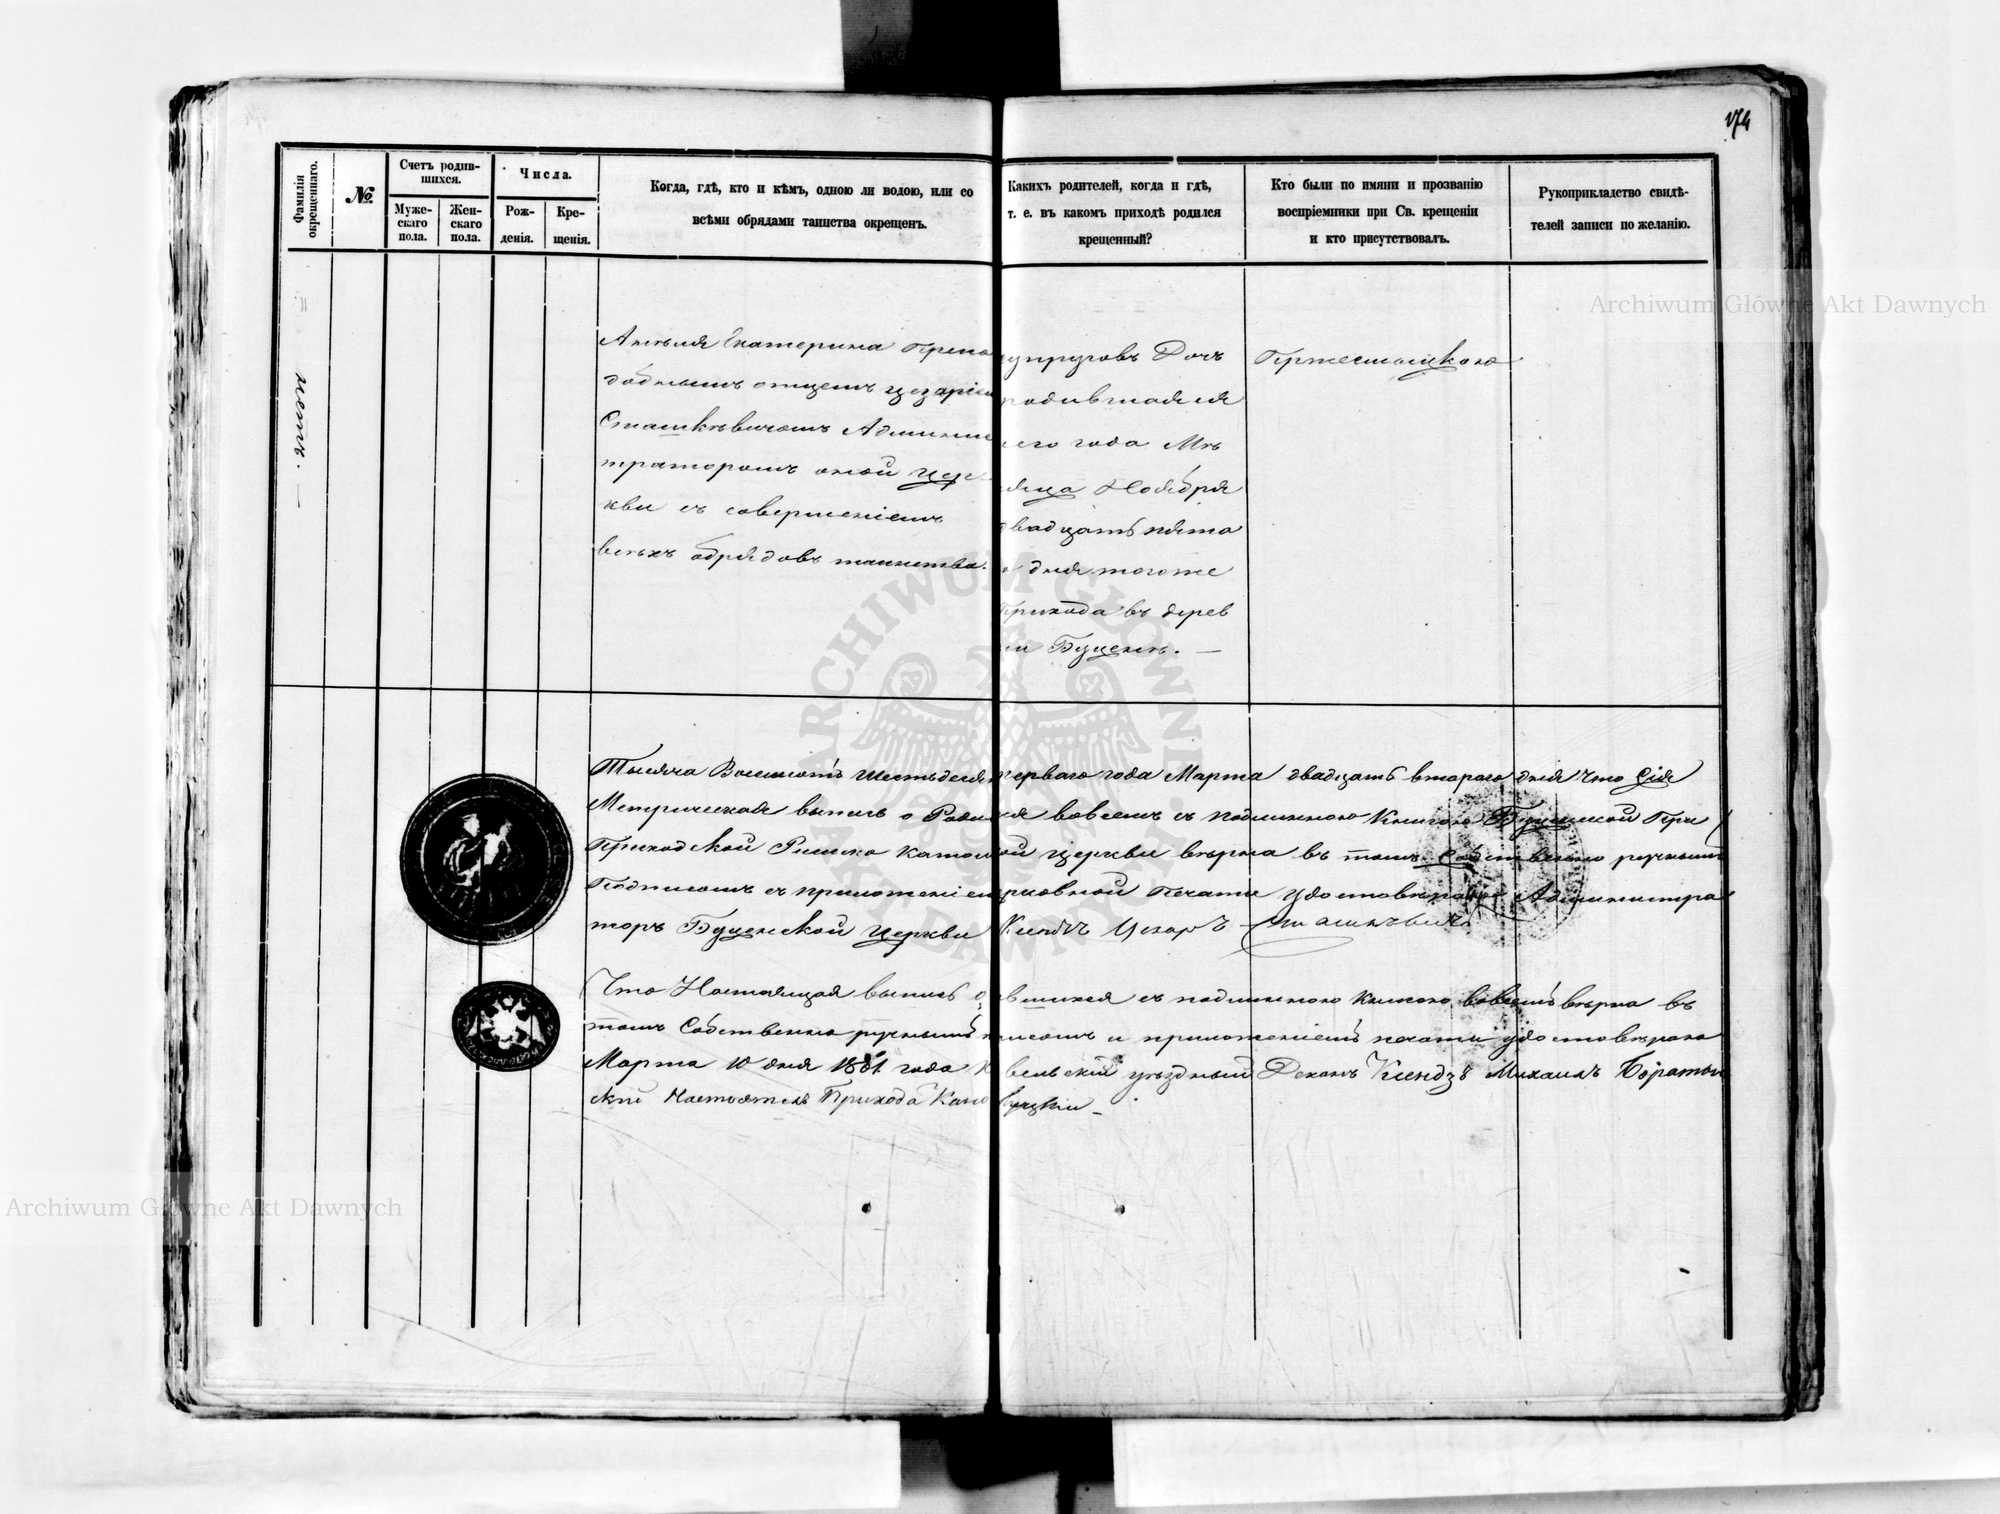 174
Фамилія
окрещеннаго.
№.
Счетъ родив-
шихся.
Муже-
скаго
пола.
Жен-
скаго
пола.
Числа.
Рож-
денія.
Кре-
щенія.
Когда, гдѣ, кто и кѣмъ, одною ли водою, или со
всѣми обрядами таинства окрещенъ.
Какихъ родителей, когда и гдѣ,
т. е. въ какомъ приходѣ родился
крещенный?
Кто были по имяни и прозванію
воспріемники при Св. крещеніи
и кто присутствовалъ.
Рукоприкладство свидѣ-
телей записи по желанію.
Екатерина Препо
добнымъ отцемъ Цезаріем
Сташкѣвичемъ Админис
траторомъ оной Цер-
кви съ совершеніемъ
всѣхъ обрядовъ таинства.
упруговъ Дочъ
родившаяся
его года Мѣ
яца Ноября
двадцать пята
о дня тогоже
Прихода въ дерев
ни
Тысяча Восемсотъ шестьдесят перваго года Марта двадцать втораго дня что Сія
Метрическая выпись о вовсемъ съ подлинною Книгою
Приходской Римско Католи ой Церкви вѣрна въ томъ Собственно ручнымъ
Подписомъ съ приложеніем рковной Печати удостовѣраю Администра
торъ Церкви Ксіондзъ Цезаръ Сташкѣвичъ
Что Настоящая выпись о вшихся съ подлинною книгою вовсемъ вѣрна въ
томъ Собственно ручнымъ писомъ и приложеніемъ печати удостовѣраю
Марта 10 дня 1861 года К вельскій уѣздный Деканъ Ксендзъ Михаилъ
скій Настоятель Прихода
Archiwum Główne Akt Dawnych
Archiwum Główne Akt Dawnych
ARCHIWUM GŁÓWNE AKT DAWNYCH